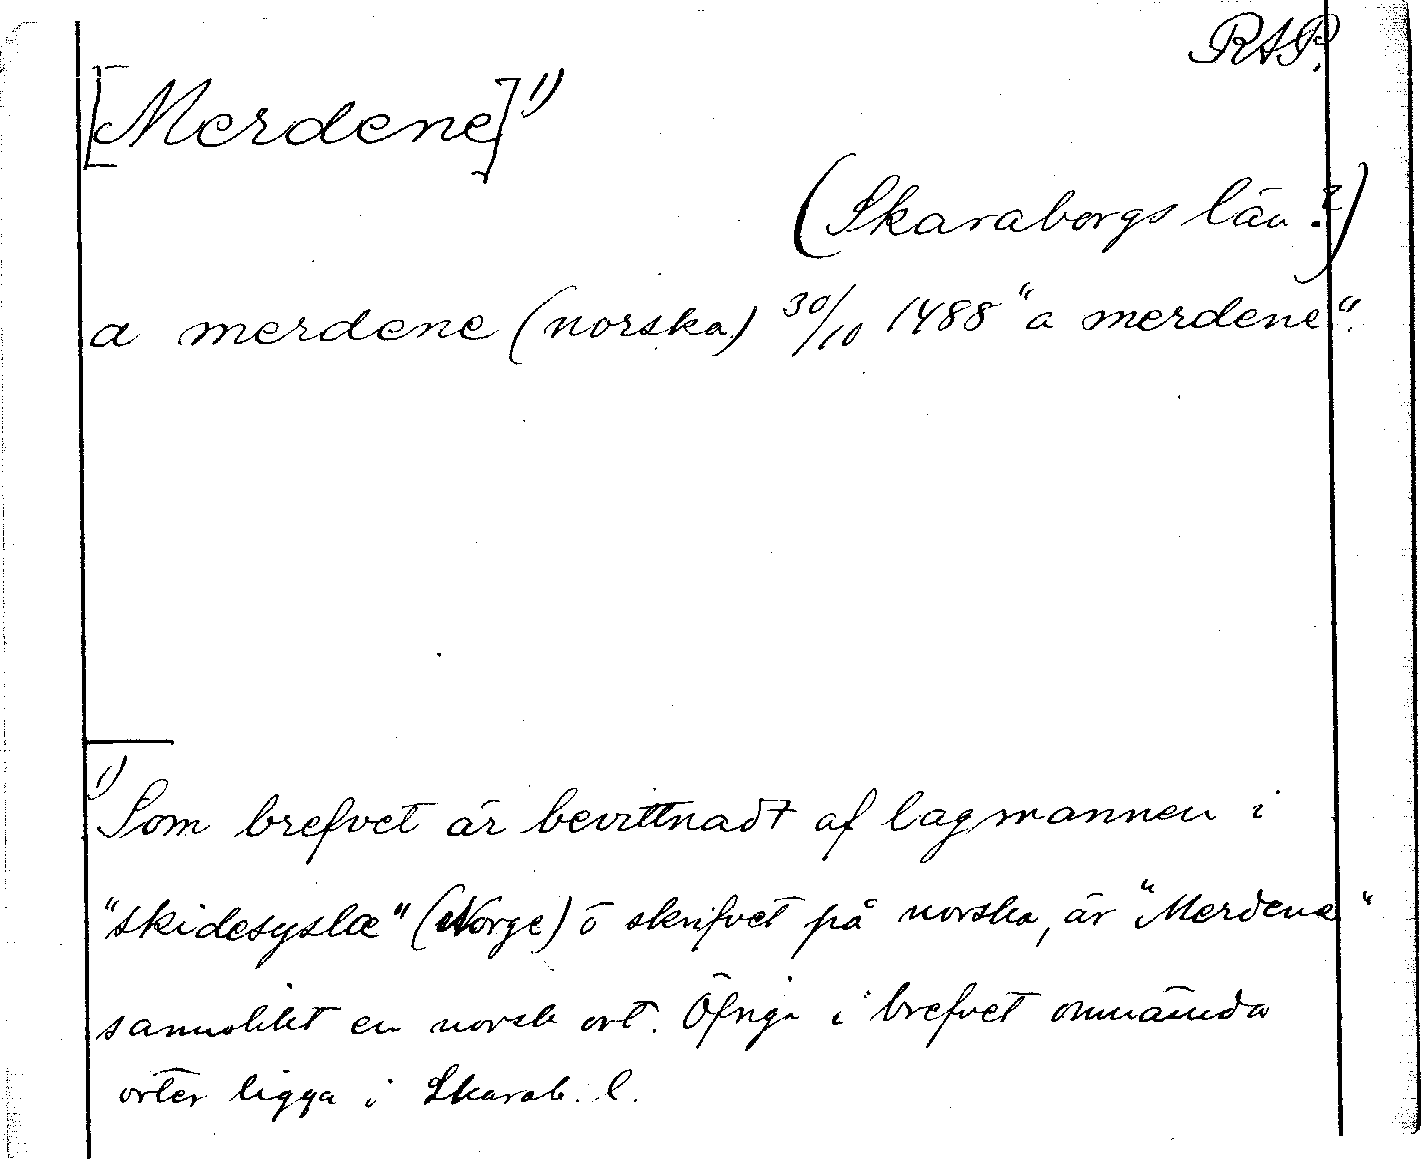 RAP.
[Merdene] 1)
(Skaraborgs län ?)
a merdene (norska) 30/10 1488 "a merdene".
1) Som brefvet är bevittnadt af lagmannen i
"skidesyslæ" (Norge) o skrifvet på norska, är "Merdene"
sannolikt en norsk ort. Öfriga i brefvet omnämnda
orter ligga i Skarab. l.